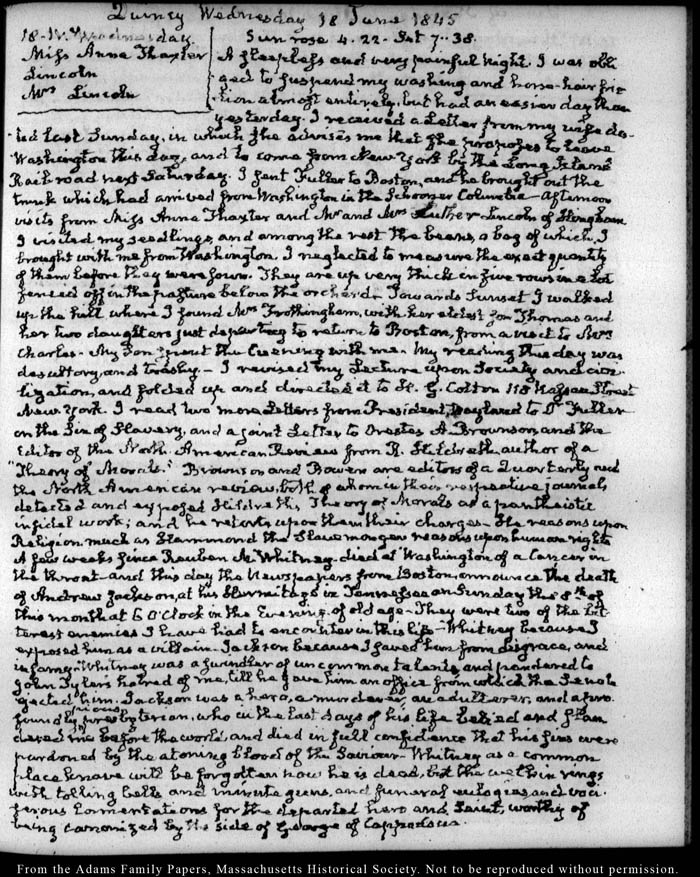 Quincy Wednesday 18 June 1845
18. IV. Wednesday.
Miss Anne Thaxter
Lincoln
Mrs Lincoln
Sun rose 4. 22. Set 7. 38.
A sleepless and very painful night. I was obli
ged to suspend my washing and horse-hair fric
tion almost entirely, but had an easier day than
yesterday. I received a Letter from my wife da-
ted last Sunday, in which she advises me that she proposes to leave
Washington this day, and to come from New York by the Long Island
Rail-road next Saturday. I sent Fuller to Boston, and he brought out the
trunk which had arrived from Washington in the Schooner Columbia - Afternoon
visits from Miss Anne Thaxter and Mr and Mrs Luther Lincoln of Hingham
I visited my seedlings, and among the rest the beans, a bag of which, I
brought with me from Washington. I neglected to measure the exact quantity
of them before they were sown. They are up very thick in five rows in a lot
fenced off in the pasture below the orchard. Towards Sunset I walked
up the hill where I found Mrs Frothingham, with her eldest son Thomas and
her two daughters just departing to return to Boston, from a visit to Mrs
Charles - My Son spent the Evening with me. My reading this day was
desultory, and trashy - I revised my Lecture upon Society and civi
lization, and folded up and directed it to St. G. Colton 118 Nassau Street
New York. I read two more Letters from President Wayland to Dr Fuller
on the Sin of Slavery, and a joint Letter to Orestes A. Brownson, and the
Editor of the North American Review from R. Hildreth, author of a
"Theory of Morals." Brownson and Bowen are editors of a Quarterly and
the North American review, both of whom in their respective journals,
detected and exposed Hildreth's Theory of Morals as a pantheistic
infidel work; and he retorts upon them their charges - He reasons upon
Religion much as Hammond the Slave monger reasons upon human rights
A few weeks since Reuben M. Whitney died at Washington of a Cancer in
the throat - and this day the Newspapers from Boston, announce the death
of Andrew Jackson, at his Hermitage in Tennessee on Sunday the 8th of
this month at 6 O'Clock in the Evening, of old age - They were two of the bit
terest enemies I have had to encounter in this life - Whitney because I
exposed him as a villain - Jackson because I saved him from disgrace, and
infamy. Whitney was a swindler of uncommon talents and pandered to
John Tyler's hatred of me, till he gave him an office from which the Senate
ejected him. Jackson was a hero, a murderer, an adulterer, and a pro
foundly pious presbyterian, who in the last days of his life belied and slan
dered me before the world, and died in full confidence that his sins were
pardoned by the atoning blood of the Saviour - Whitney as a common
place knave will be forgotten now he is dead, but the welkin rings
with tolling bells and minute guns, and funeral eulogies and voci
ferous lamentations for the departed hero and Saint, worthy of
being canonized by the side of George of Cappadocia.
From the Adams Family Papers, Massachusetts Historical Society. Not to be reproduced without permission.